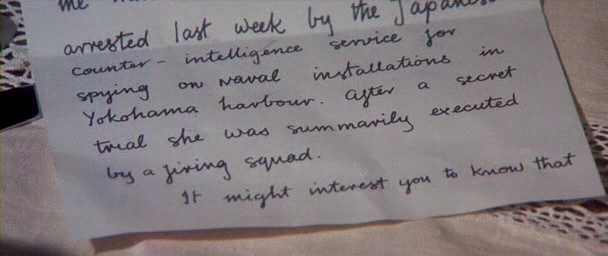 me
arrested last week by the Japanese
counter-intelligence service for
spying on naval installations in
Yokohama harbour. After a secret
trial she was summarily executed
by a firing squad.
It might interest you to know that